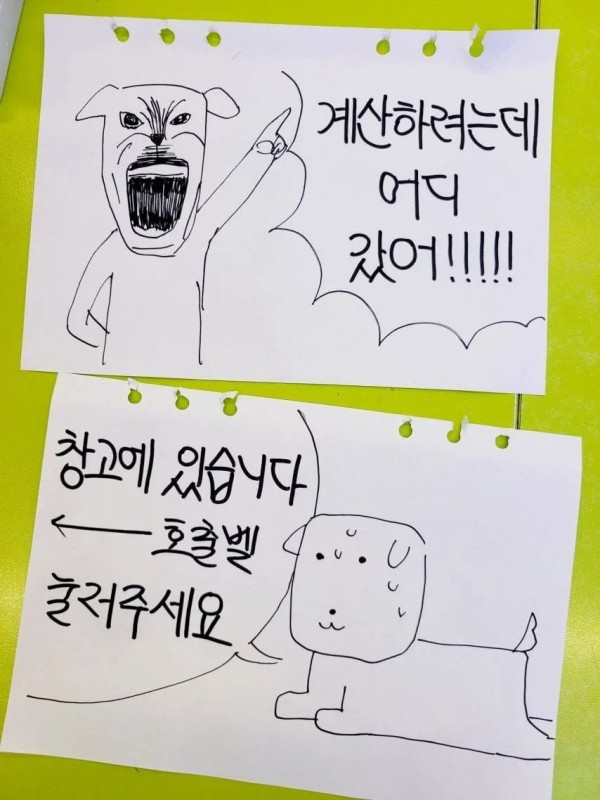 계산하려는데
어디
갔어!!!!!!
창고에 있습니다
← 호출벨
눌러주세요